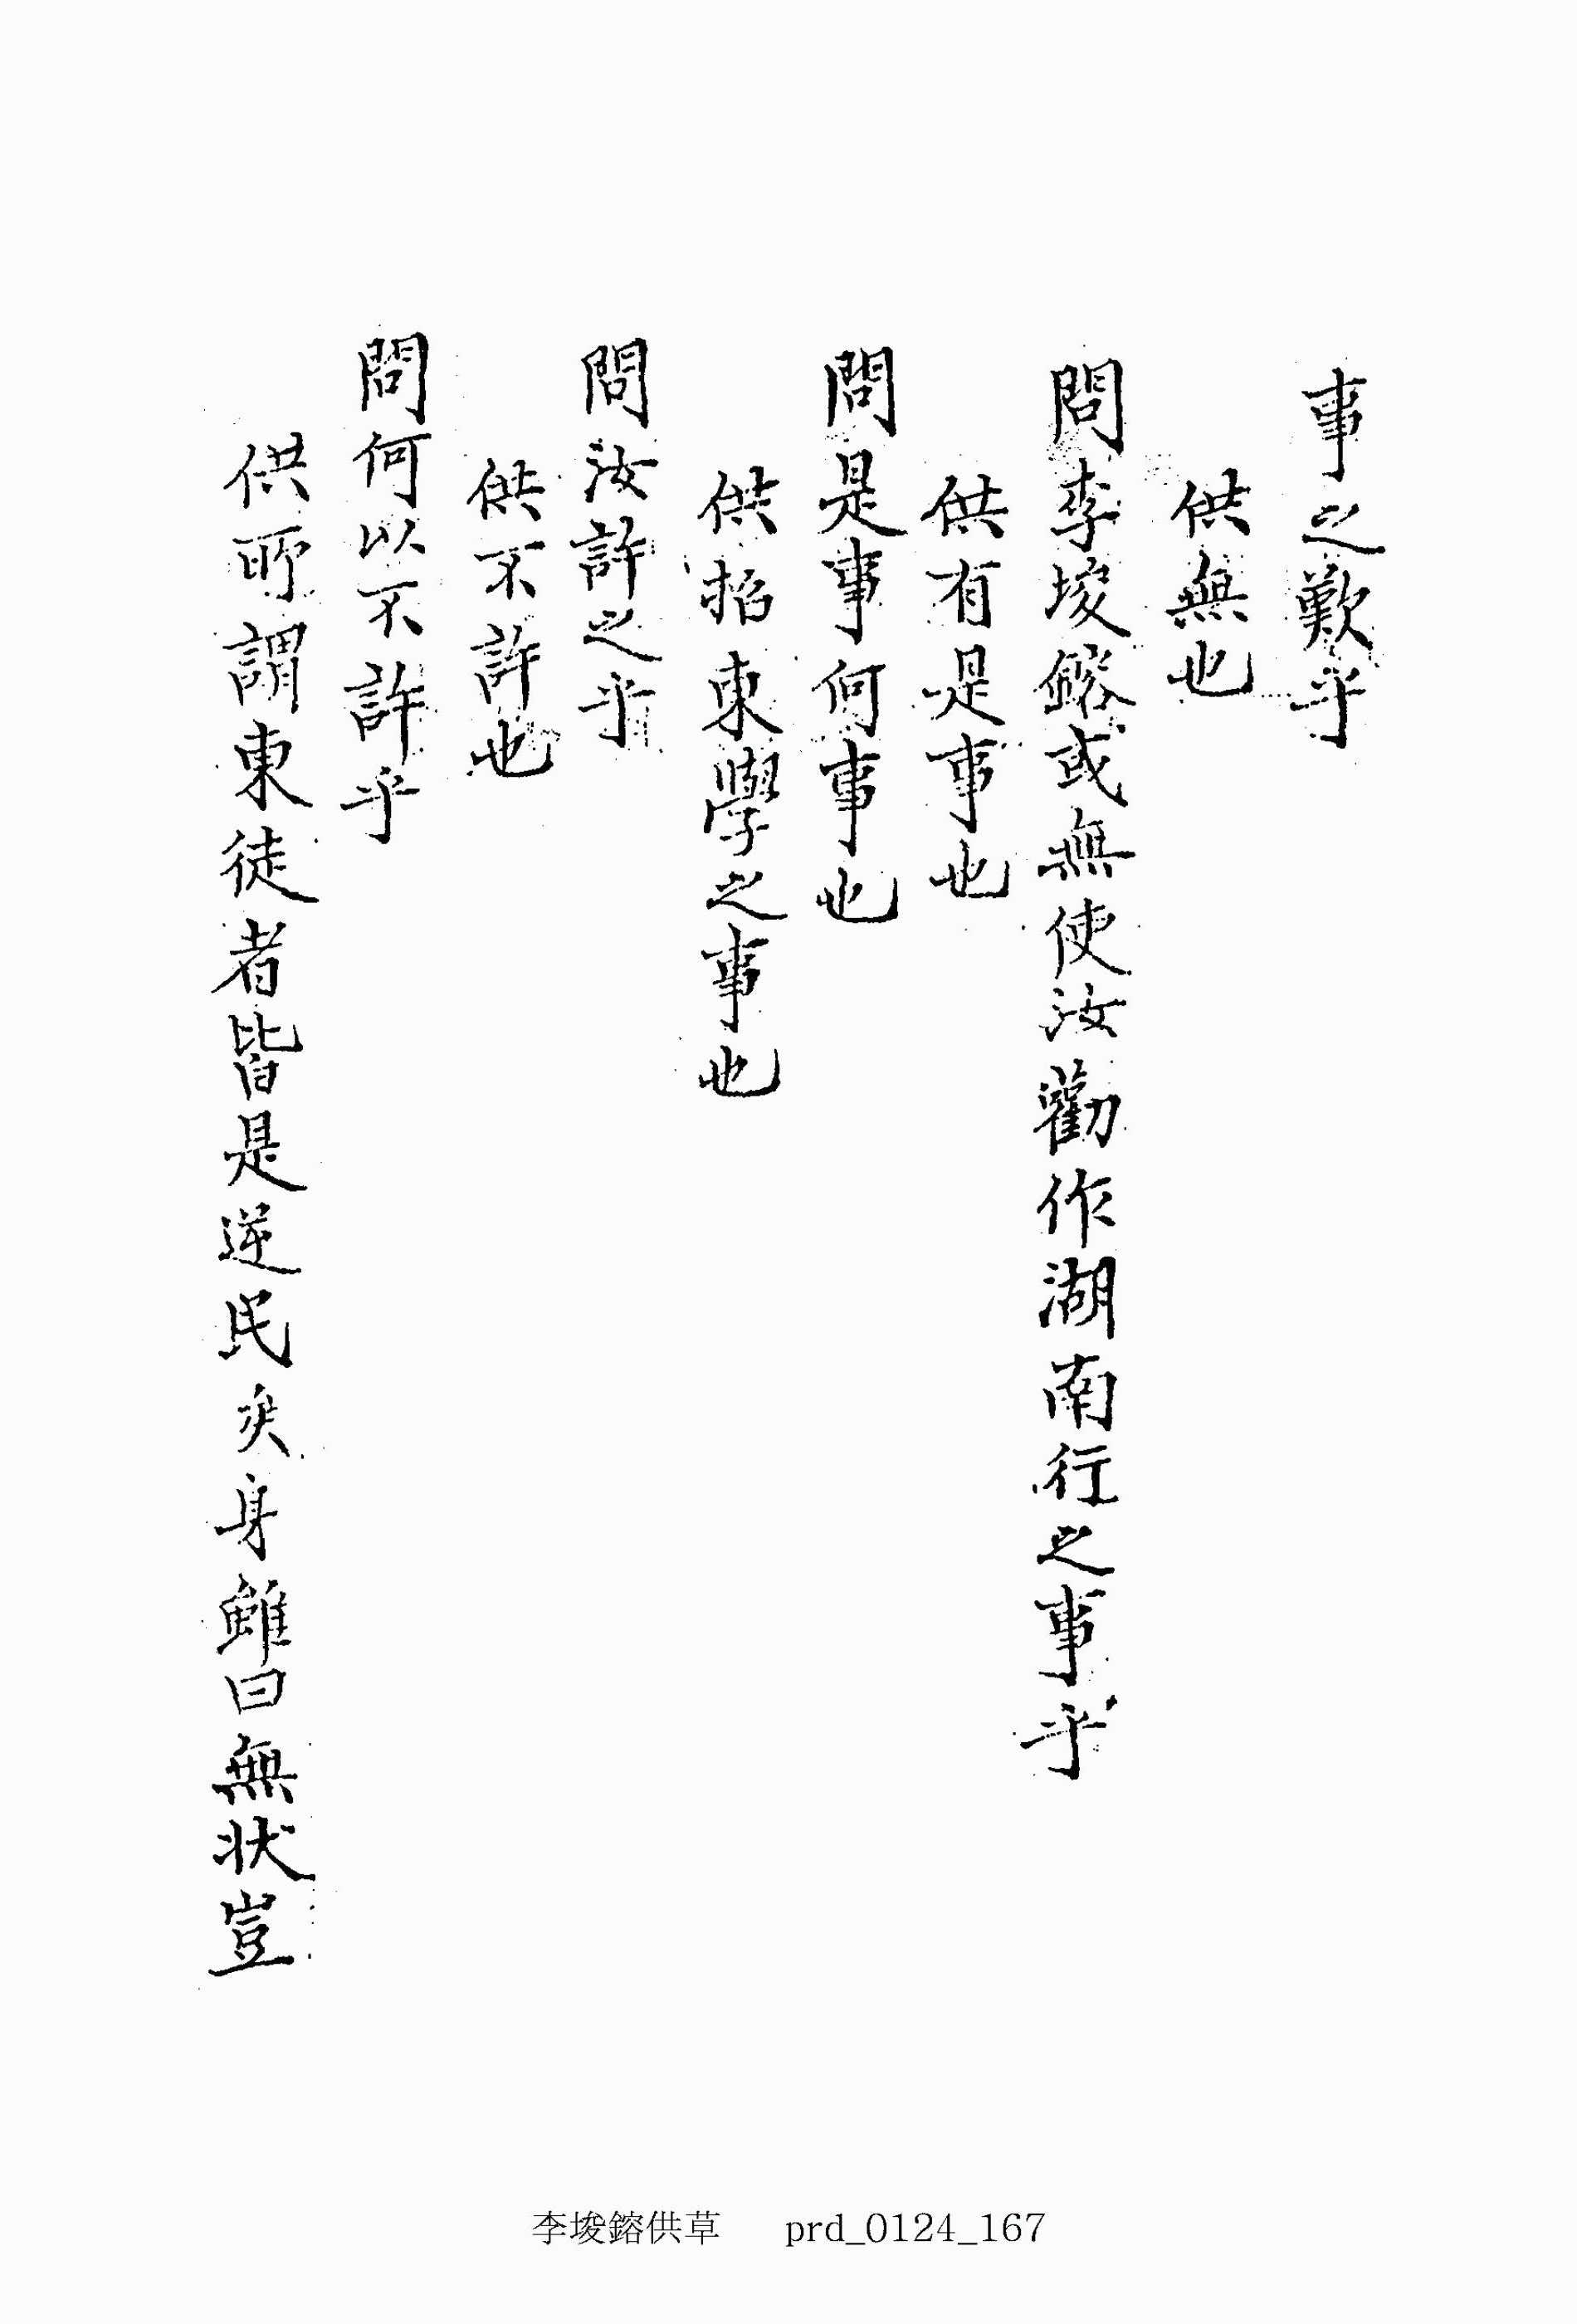 事之歎乎
供無也
問李埈鎔或無使汝勸作湖南行之事乎
供有是事也
問是事何事也
供招東學之事也
問汝許之乎
供不許也
問何以不許乎
供所謂東徒者皆是逆民矣身雖曰無狀豈
李埈鎔供草 prd_0124_167